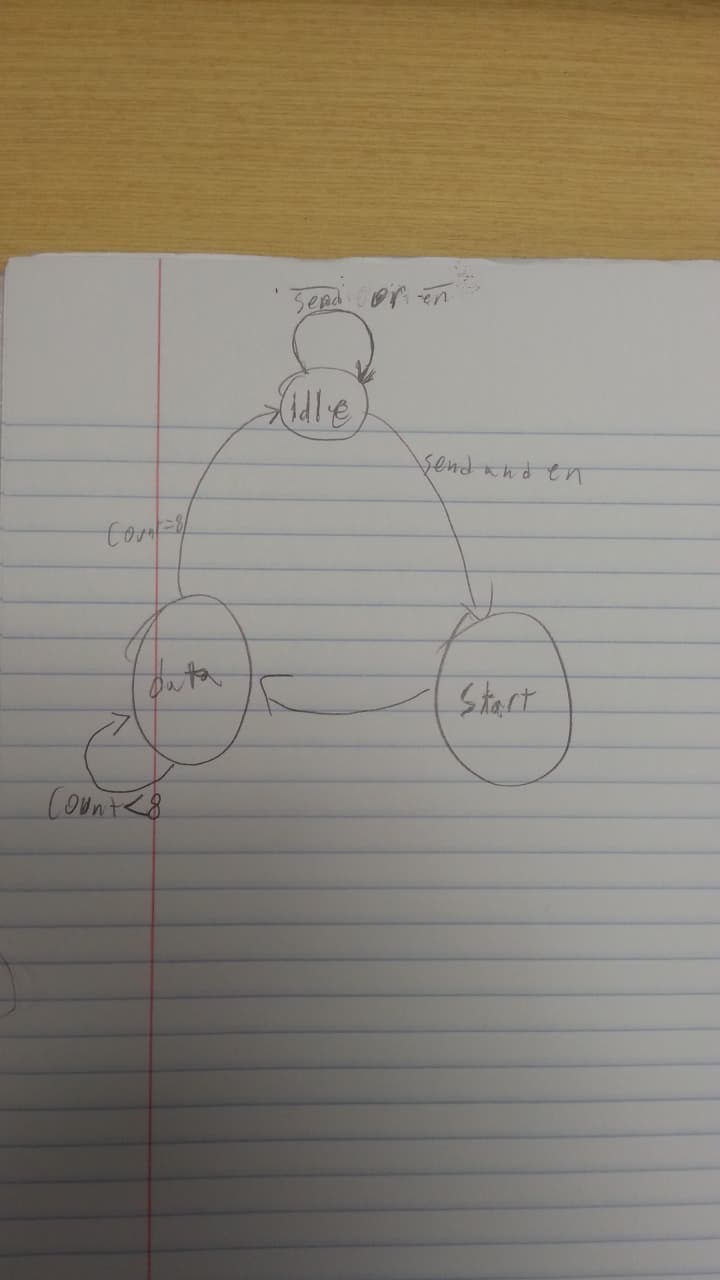 s̅e̅n̅d̅ or e̅n̅
Idle
send and en
Count=8
data
Start
Count<8